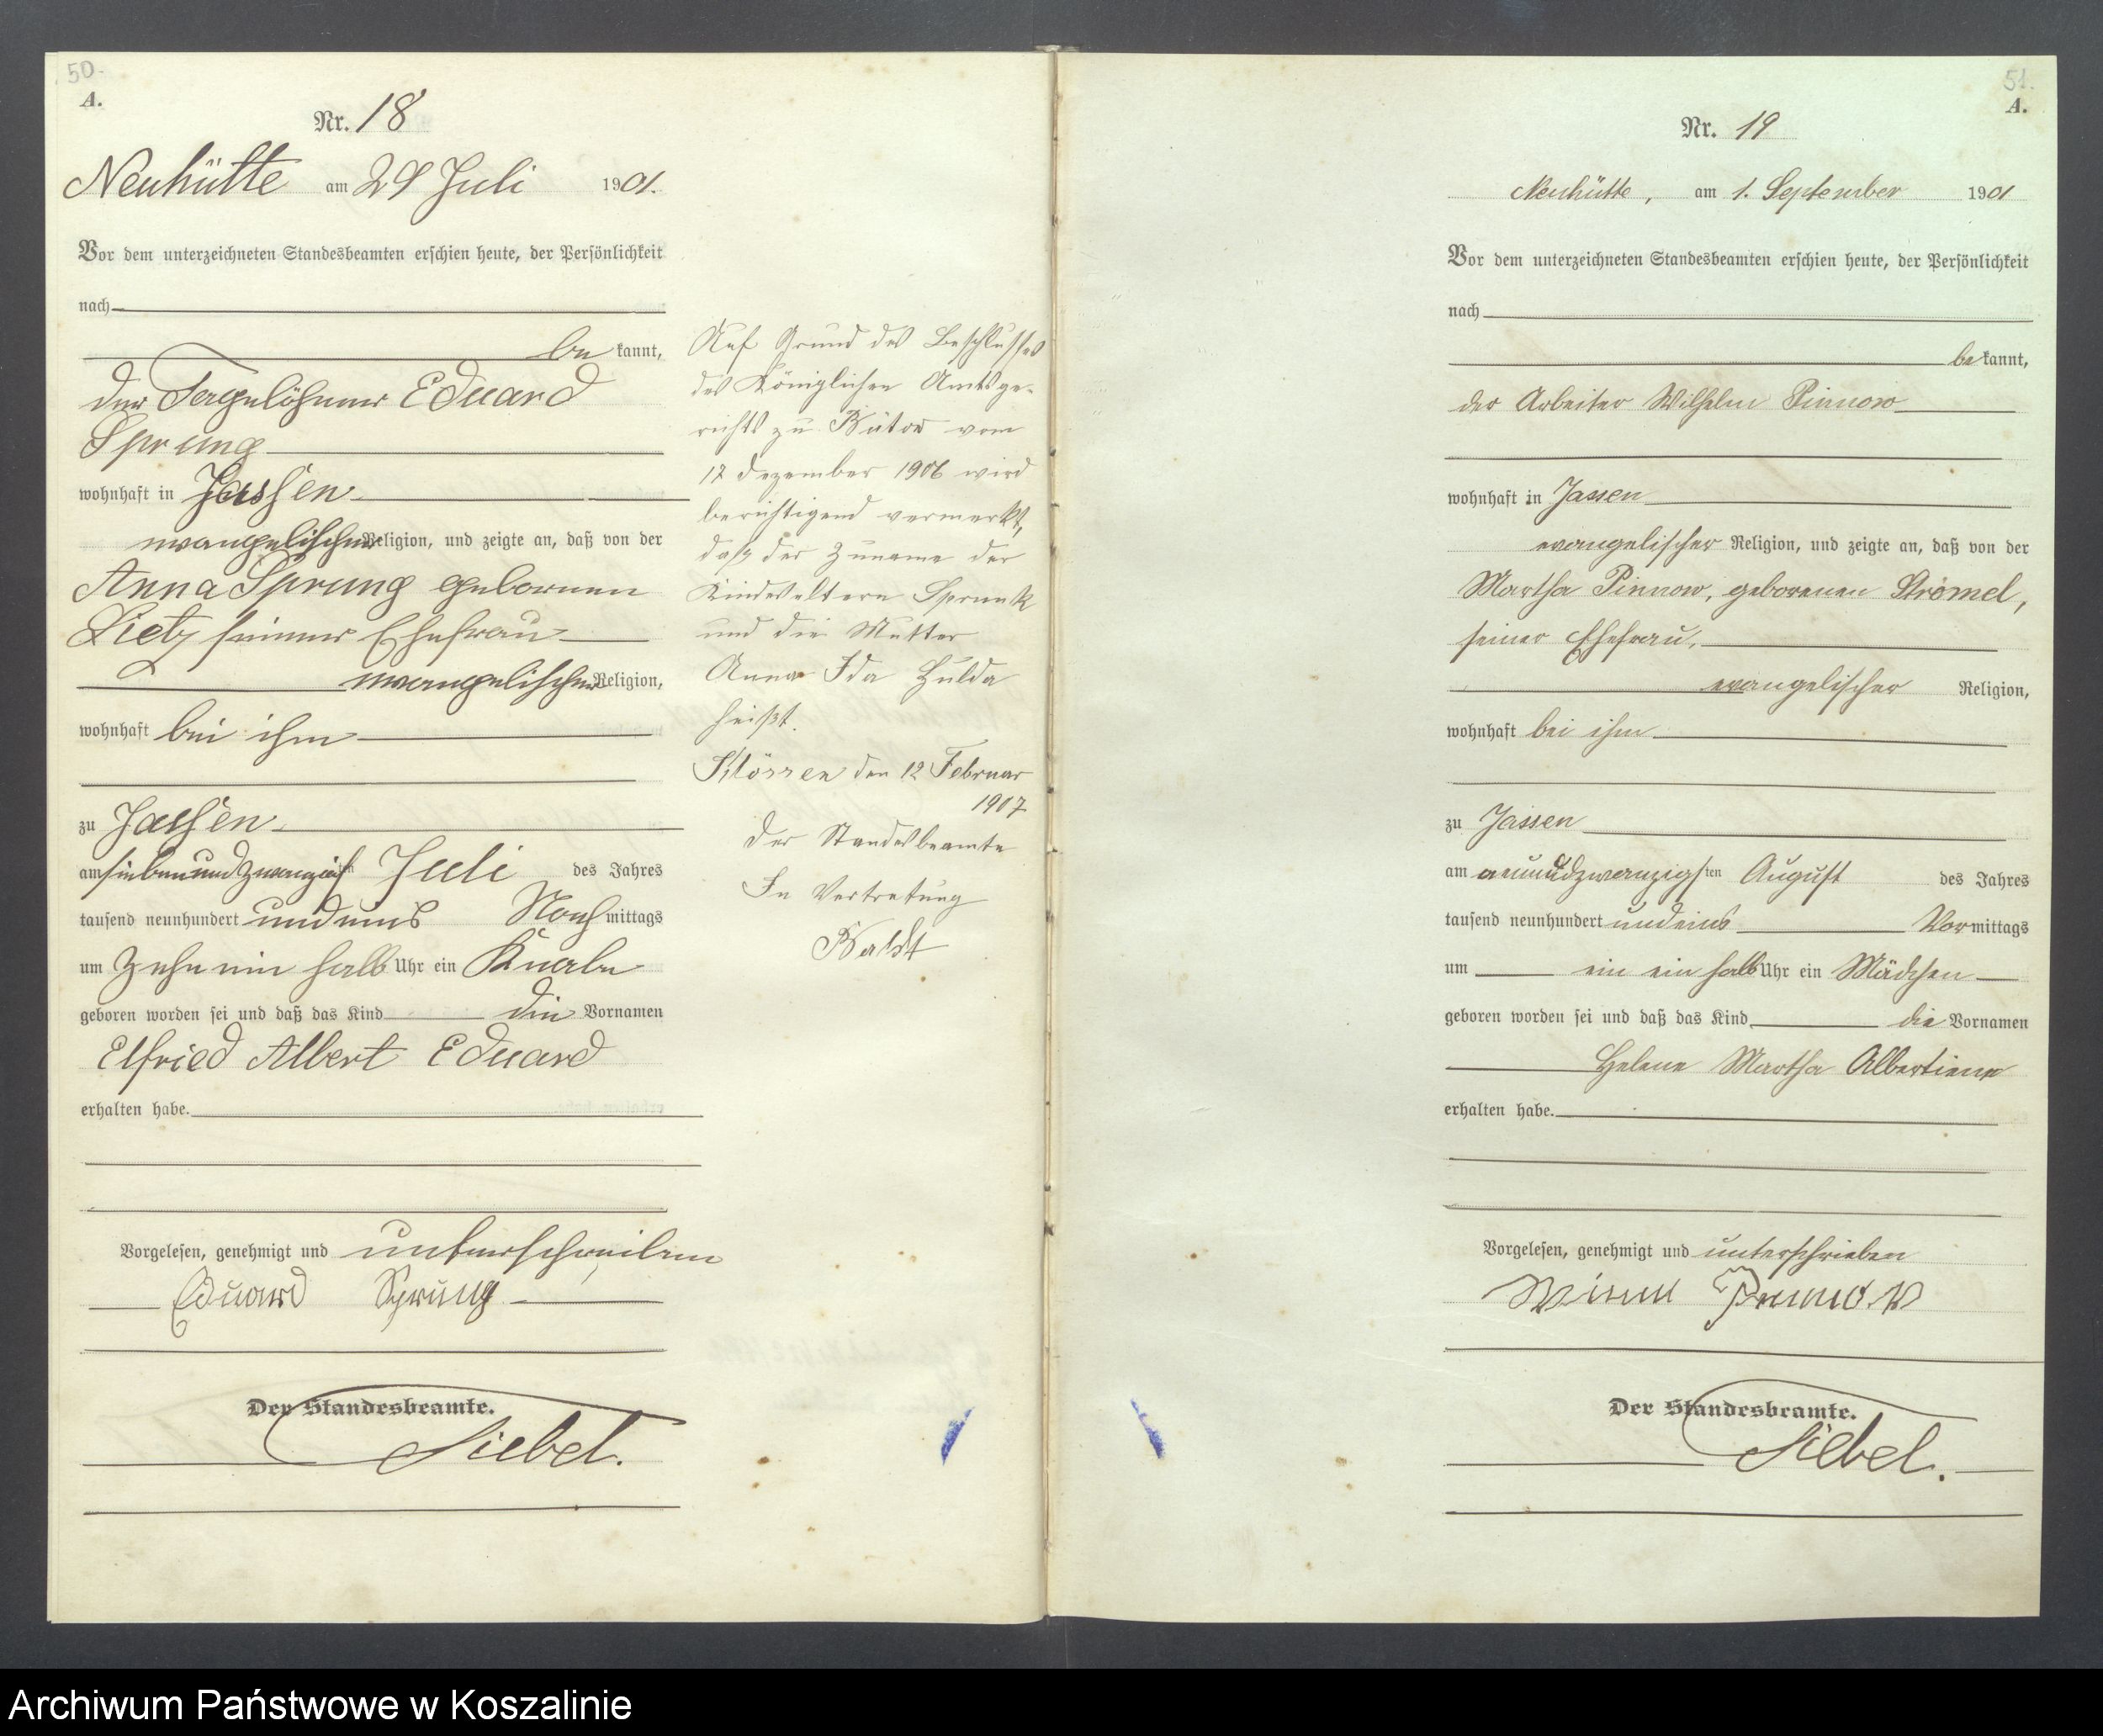 50.
A.
Nr. 18
Neuhütte am 29 Juli 1901.
Vor dem unterzeichneten Standesbeamten erschien heute, der Persönlichkeit
nach
be kannt,
der Tagelöhner Eduard
Sprung
wohnhaft in Jassen
evangelischer Religion, und zeigte an, daß von der
Anna Sprung geborenen
Lietz seiner Ehefrau
evangelischer Religion,
wohnhaft bei ihm
zu Jassen
am siebenundzwanzigsten Juli des Jahres
tausend neunhundert und eins Nachmittags
um zehn ein halb Uhr ein Knabe
geboren worden sei und daß das Kind die Vornamen
Elfried Albert Eduard
erhalten habe.
Vorgelesen, genehmigt und unterschrieben
Eduard Sprung
Der Standesbeamte.
Siebel.
Auf Grund des Beschlusses
des Königlichen Amtsge-
richts zu Bütow vom
17 Dezember 1906 wird
berichtigend vermerkt,
daß der Zuname der
Kindeseltern Sprunk
und die Mutter
Anna Ida Hulda
heißt.
den 12 Februar
1907
Der Standesbeamte
In Vertretung
51.
A.
Nr. 19
Neuhütte, am 1. September 1901
Vor dem unterzeichneten Standesbeamten erschien heute, der Persönlichkeit
nach
be kannt,
der Arbeiter Wilhelm Pinnow
wohnhaft in Jassen
evangelischer Religion, und zeigte an, daß von der
Martha Pinnow, geborenen Strömel,
seiner Ehefrau,
evangelischer Religion,
wohnhaft bei ihm
zu Jassen
am neunundzwanzigsten August des Jahres
tausend neunhundert und eins Vormittags
um ein ein halb Uhr ein Mädchen
geboren worden sei und daß das Kind die Vornamen
Helene Martha Albertiene
erhalten habe.
Vorgelesen, genehmigt und unterschrieben
Pinnow
Der Standesbeamte.
Siebel.
Archiwum Państwowe w Koszalinie